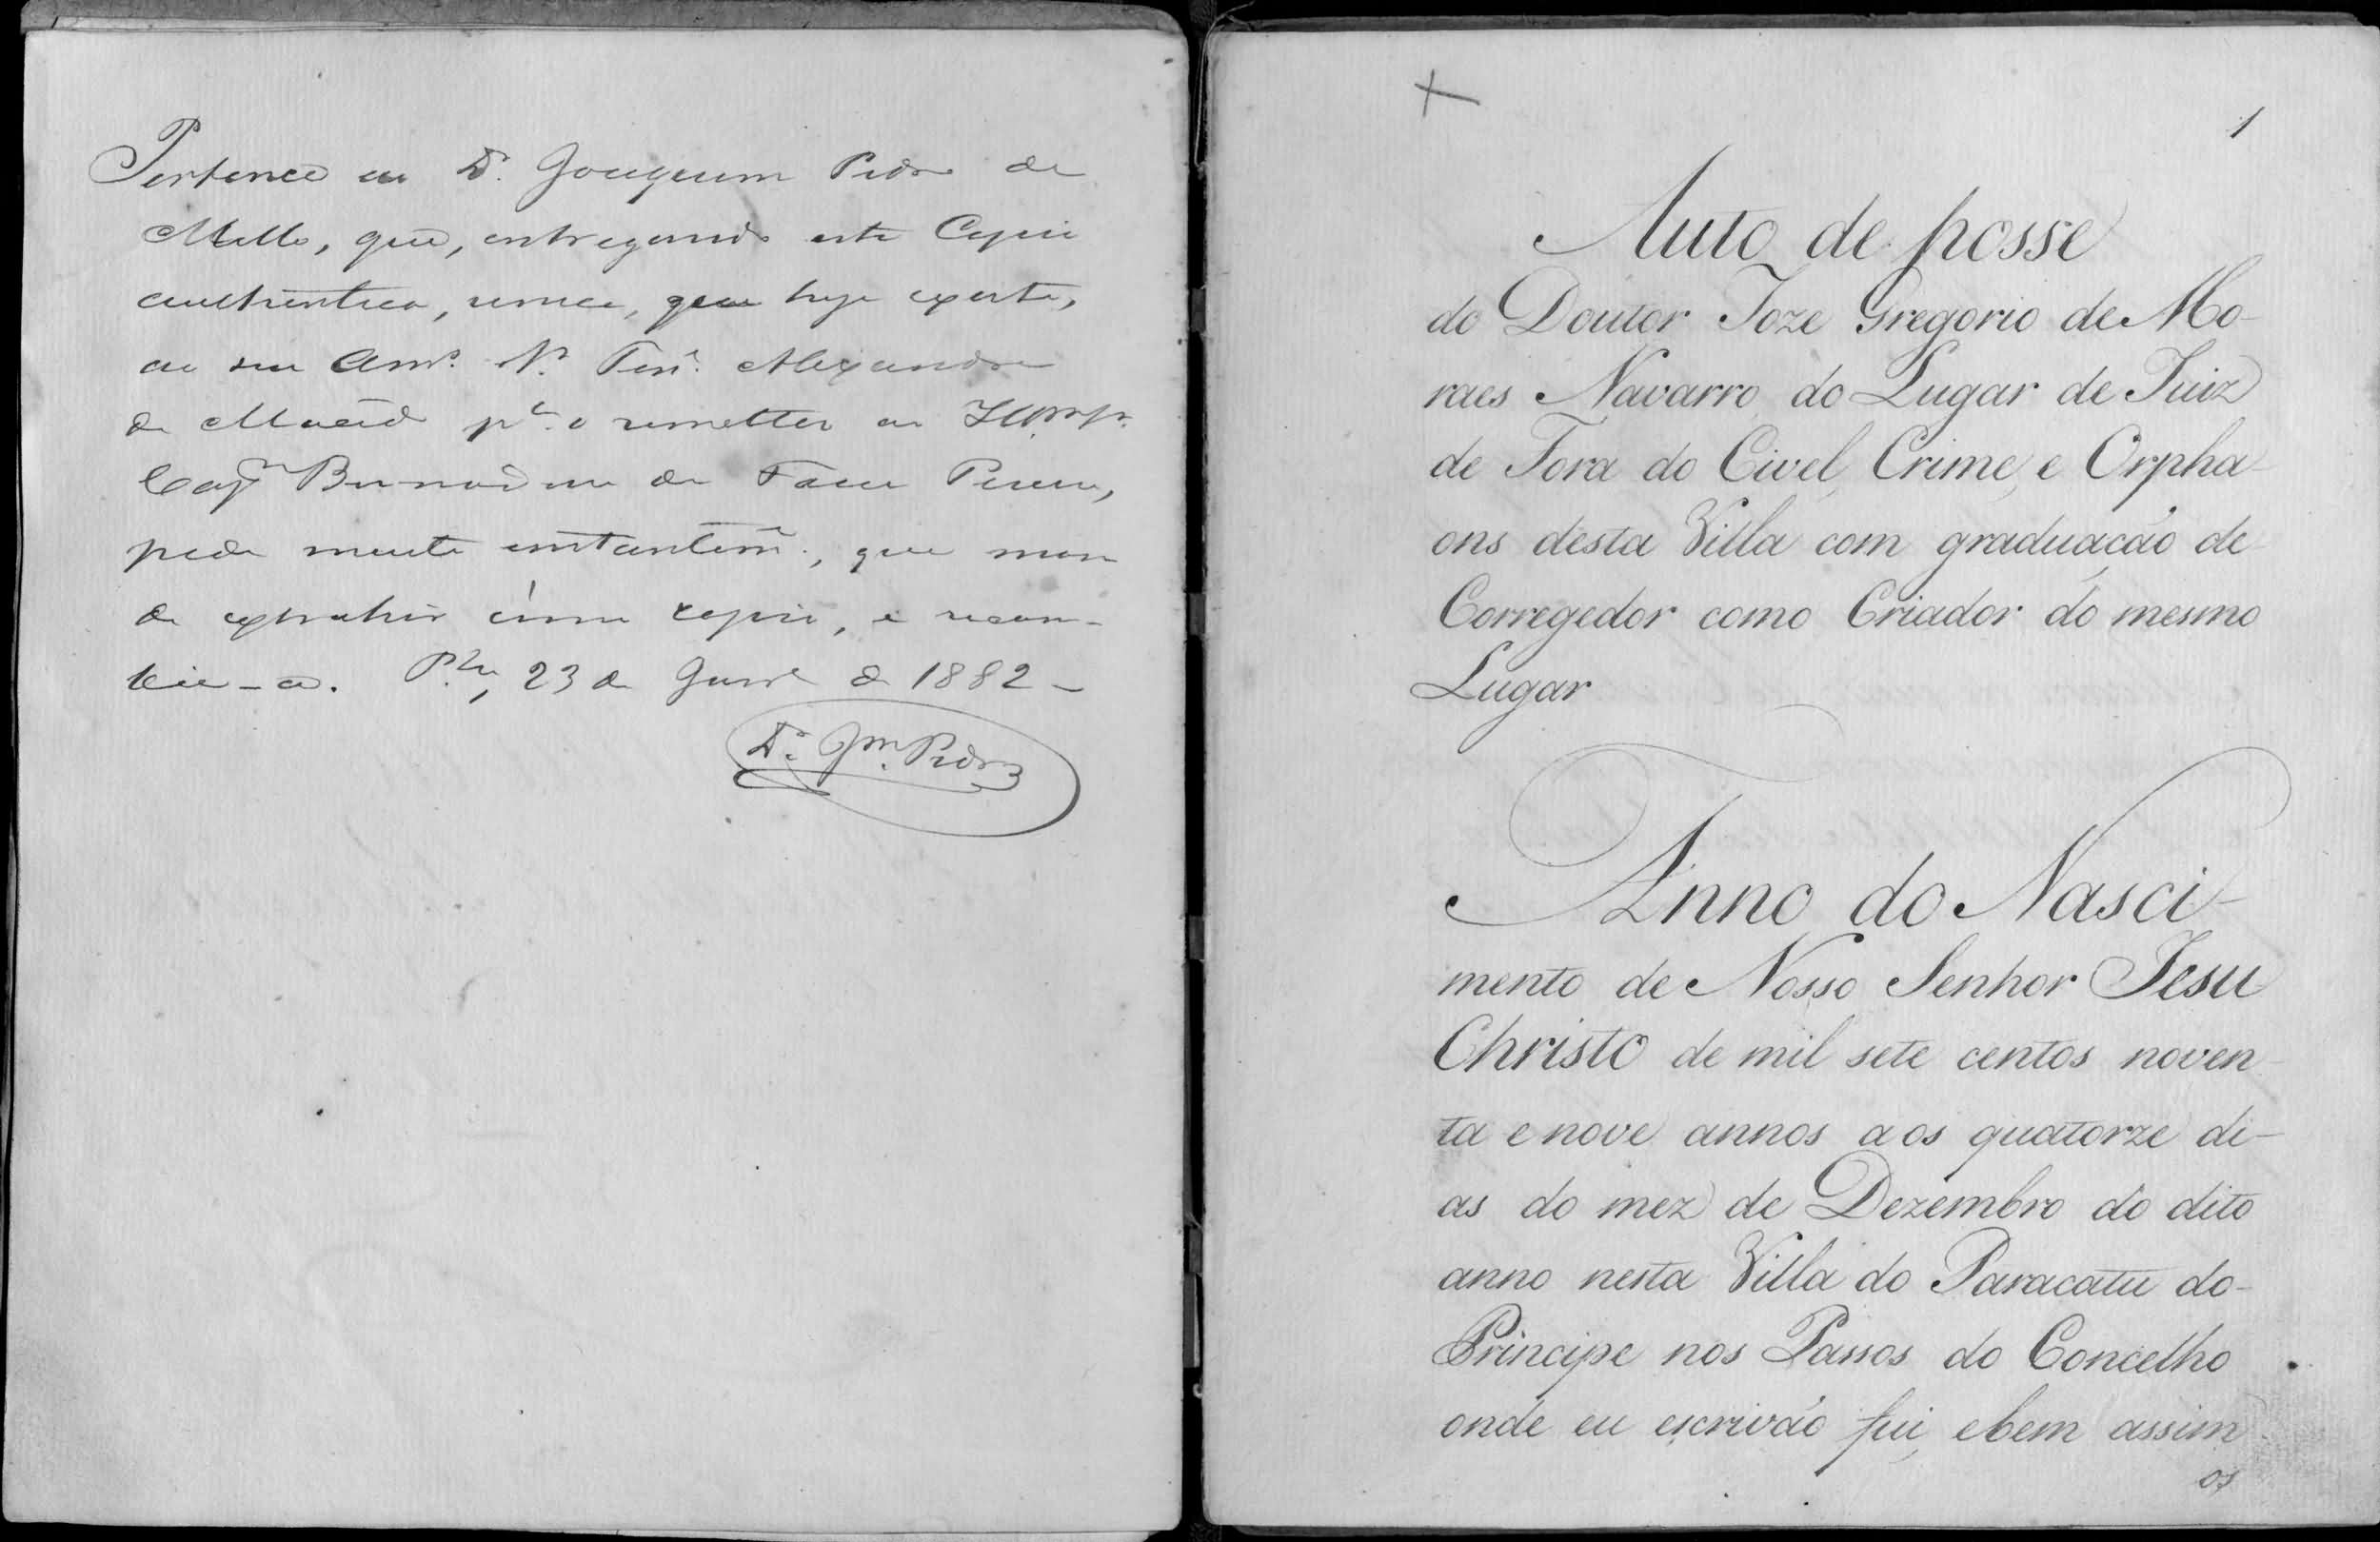 Pertence ao Dr. Joaquim Pedro de
Mello, que, entregando esta Copia
authentica, unica, que hoje existe,
ao seu Amo. Alexandre
de pa. o remetter ao
Capm. Bernardino de Faria Pereira,
pede muito instantemte., que man
de extrahir uma copia, e recam-
bie-a. 23 de Junho de 1882 -
Dr. Jm. Pedro
1
Auto de posse
do Doutor Joze Gregorio de Mo-
raes Navarro do Lugar de Juiz
de Fora do Civel, Crime, e Orpha-
ons desta Villa com graduação de
Corregedor como Criador do mesmo
Lugar
Anno do Nasci-
mento de Nosso Senhor Jesu
Christo de mil sete centos noven
ta e nove annos aos quatorze di-
as do mez de Dezembro do dito
anno nesta Villa do Paracatu do-
Principe nos Passos do Concelho
onde eu escrivão fui, e bem assim
os